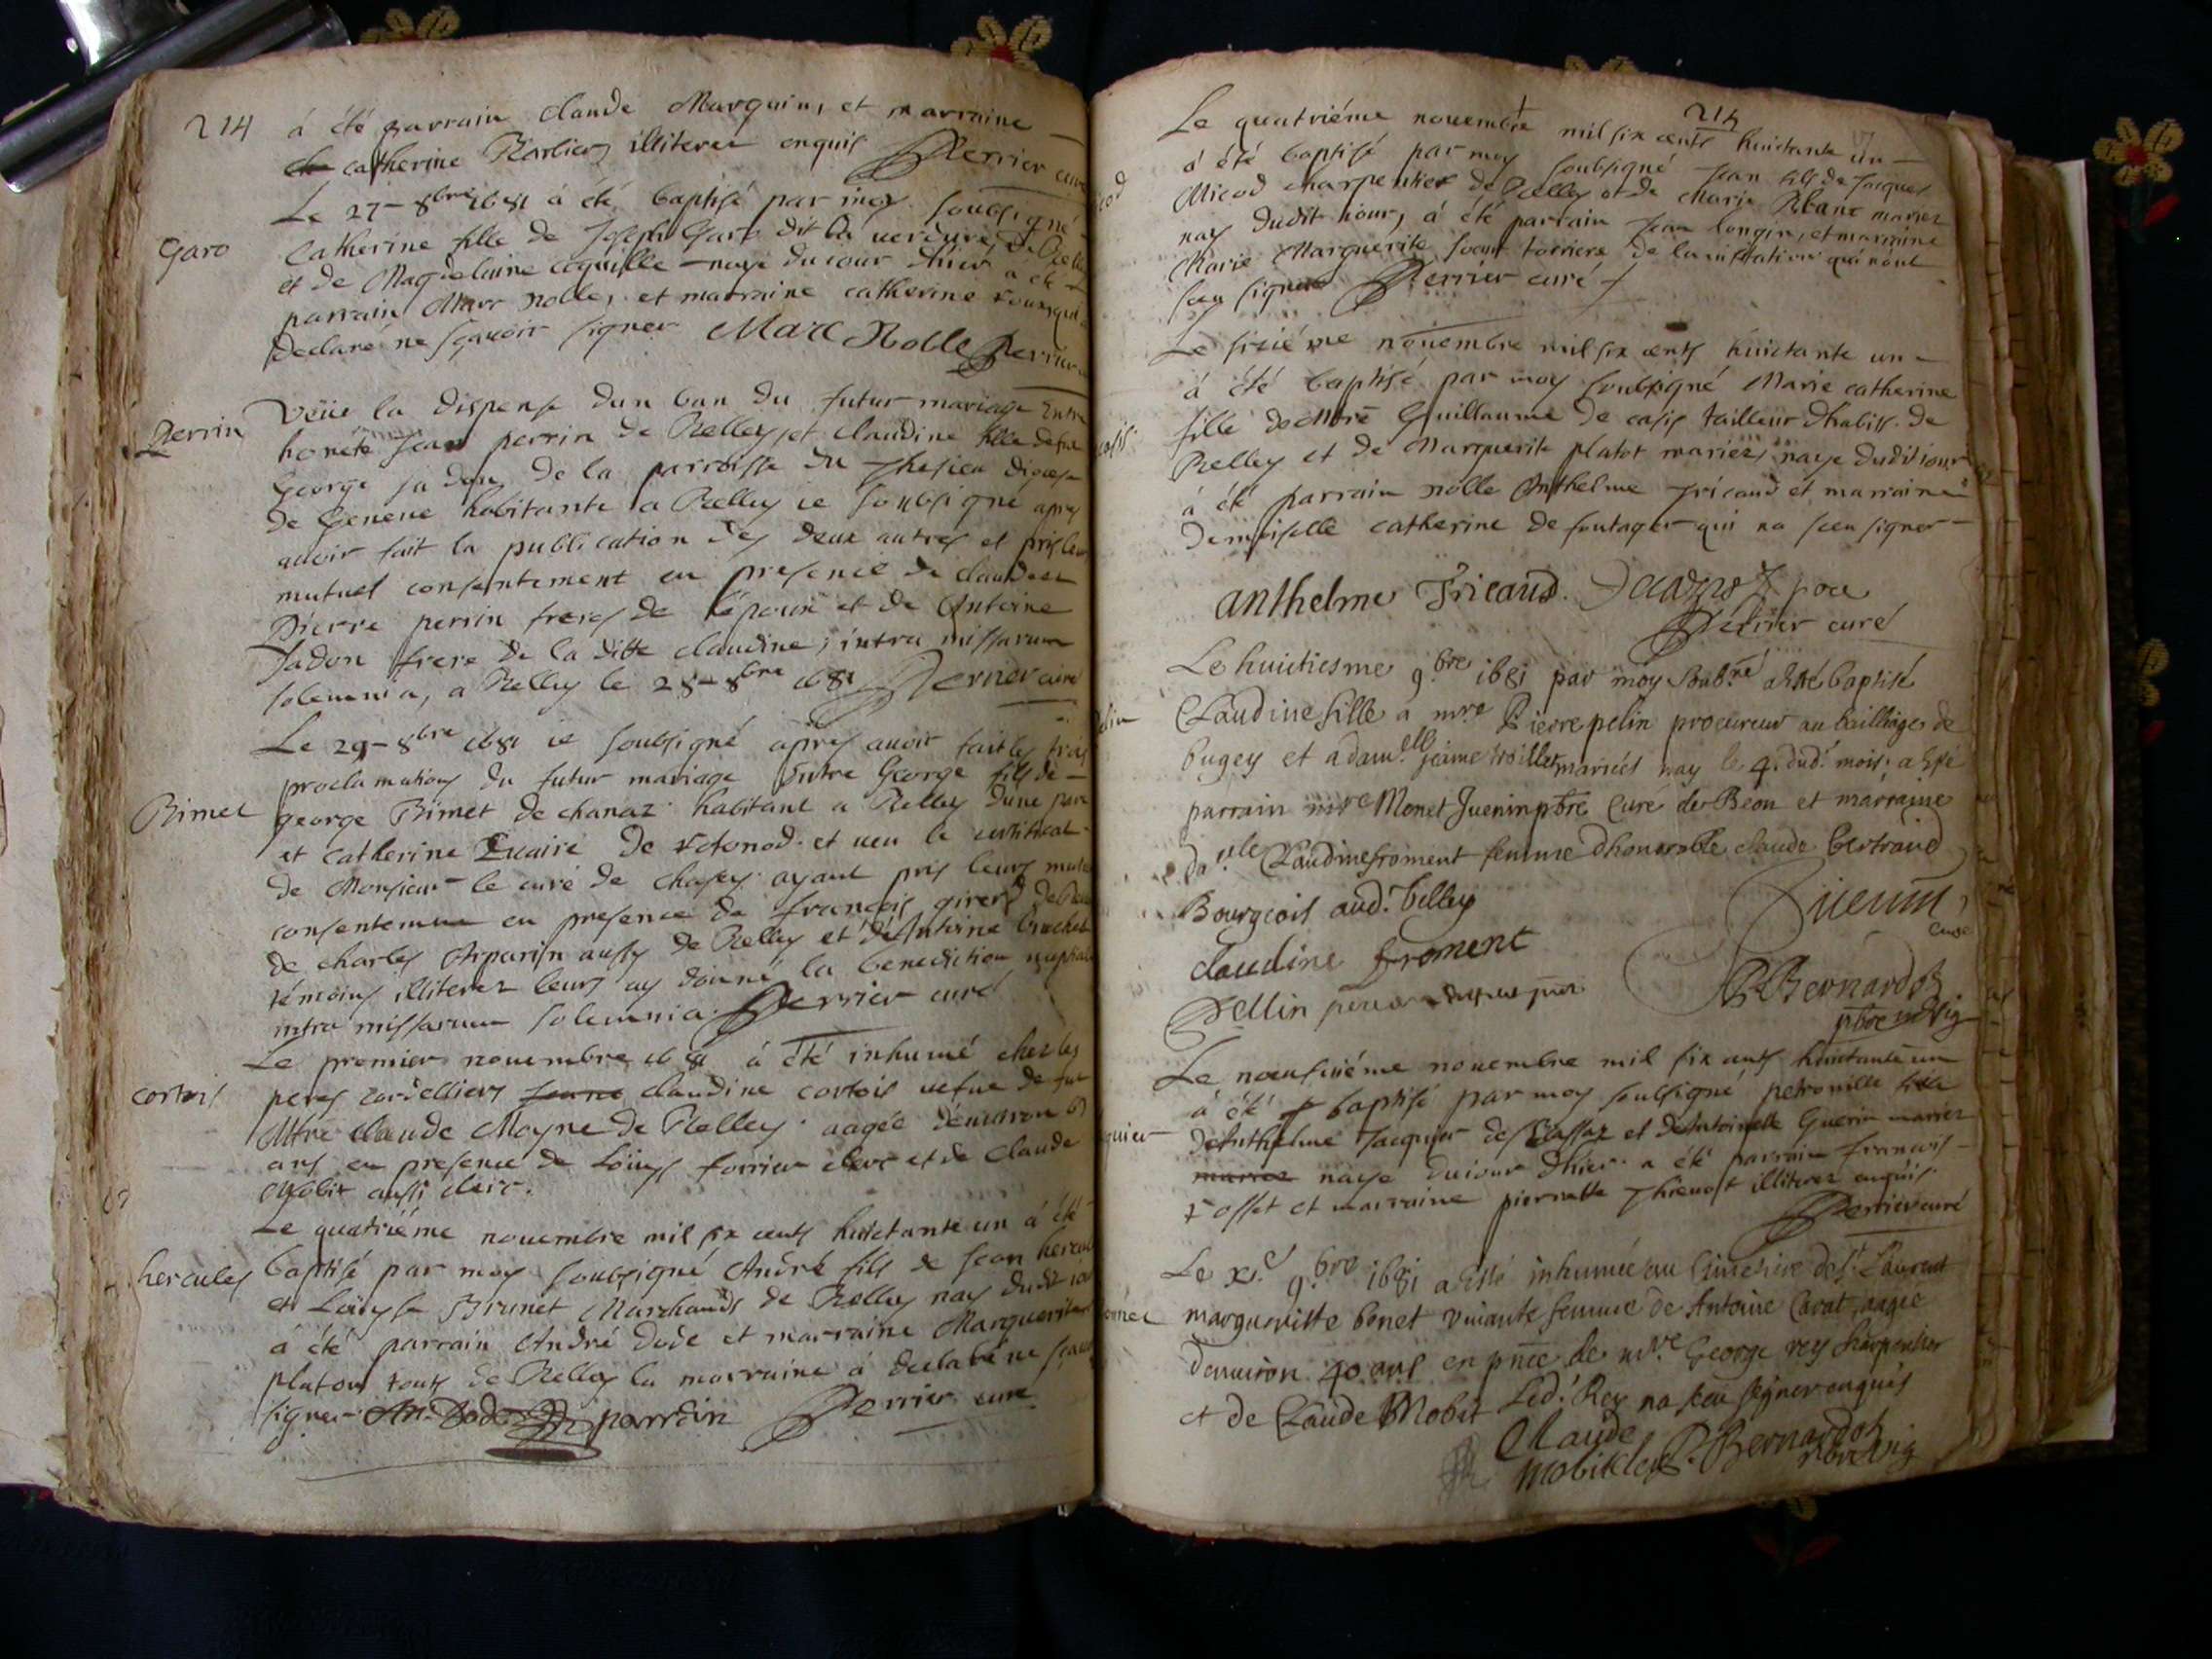 214
à été parrain Claude Marquin, et marraine
catherine illiterez enquis Perrier curé
Le 27 - 8bre 1681 à été baptisé par moy soubsigné
Garo
Catherine fille de Joseph Garo dit la verdure, de Belley
et de Magdelaine coquille - naye du jour dhier a été
parrain Marc Nolle, et marraine catherine
declaré ne sçavoir signer Marc Nolle Perrier
Perrin
Veüe la dispense dun ban du futur mariage Entre
honête Jean perrin de Belley et claudine fille de feu
George jadon de la parroisse du diocese
de Geneve habitante a Belley ie soubsigné apres
auoir fait la publication des deux autres et pris leur
mutuel consentement en presence de claude et
Pierre perrin freres de l'époux et de Antoine
Jadon frere de la ditte claudine, intra missarum
solemnia, a Belley le 28 - 8bre 1681 Perrier curé
Le 29 - 8bre 1681 ie soubsigné apres auoir fait les trois
proclamations du futur mariage Entre George fils de -
Bimet
george Bimet de chanaz habitant a Belley dune part
et catherine de et veu le certificat
de Monsieur le curé de chasey ayant pris leurs mutuel
consentement en presence de francois girerd de
de charles Arparin aussy de Belley et de Antoine
témoins illiterez leurs ay donné la benediction nuptiale
intra missarum solemnia. Perrier curé
Le premier nouembre 1681 à été inhumé chez les
cortois
peres cordelliers claudine cortois uefue de feu
Mtre claude Moyne de Belley aagée dénuiron 65
ans en presence de Loüys forrier clerc et de Claude
Mobit aussi clerc.
Le quatriéme nouembre mil six cents huictante un à été
hercules
baptisé par moy soubsigné André fils de Jean hercules
et Loüyse Brunet Marchands de Belley nay dudit iour
à été parrain André Dode et marraine Marguerite
platon touts de Belley la marraine à declaré ne sçauoir
signer An. Dode parrain Perrier curé
214
Le quatriéme nouembre mil six cents huictante un -
à été baptisé par moy soubsigné Jean fils de Jacques
Micod charpentier de Belley et de Marie Blanc mariez
nay dudit iour, à été parrain Jean longin, et marraine
Marie Marguerite soeur torriere de la uisitation qui nont
sceu signer Perrier curé
Le siziéme nouembre mil six cents huictante un -
à été baptisé par moy soubsigné Marie catherine
casis
fille de Mtre Guillaume de casis tailleur dhabits de
Belley et de Marguerite platot mariez, naye dudit iour
à été parrain noble Anthelme fricaud et marraine
demoiselle catherine de qui na sceu signer -
Anthelme Fricaud.
Perrier curé
Le huictiesme 9.bre 1681 par moy Soubné a esté baptisé
Claudine fille a mre Pierre pelin procureur au bailliage de
bugey et a dam.lle jeanne mariés nay le 4. dud.t mois. a esté
parrain mre Monet Juenin pbre Curé de Beon et marraine
da.lle Claudine froment femme dhonorable claude bertrand
Bourgeois aud.t belley
Juenin
curé
claudine froment
Pellin pere
P. Bernardot
pbre vig
Le neufuiéme nouembre mil six cents huictante un
à été baptisé par moy soubsigné, petronille fille
de Anthelme Jacquier de et de Antoinette Guerin mariez
naye du iour dhier. a été parrain francois -
et marraine pierrette illiterez enquis
Perrier curé
Le x.e 9.bre 1681 a esté inhumée au Cimetiere de s.t Laurent
margueritte bonet viuante femme de Antoine Carat, aagée
denuiron 40 ans en pnce de mre George rey charpentier
et de Claude Mobit Led.t Rey na sceu signer enquis
Claude
mobit clerc P. Bernardot
pbre vig